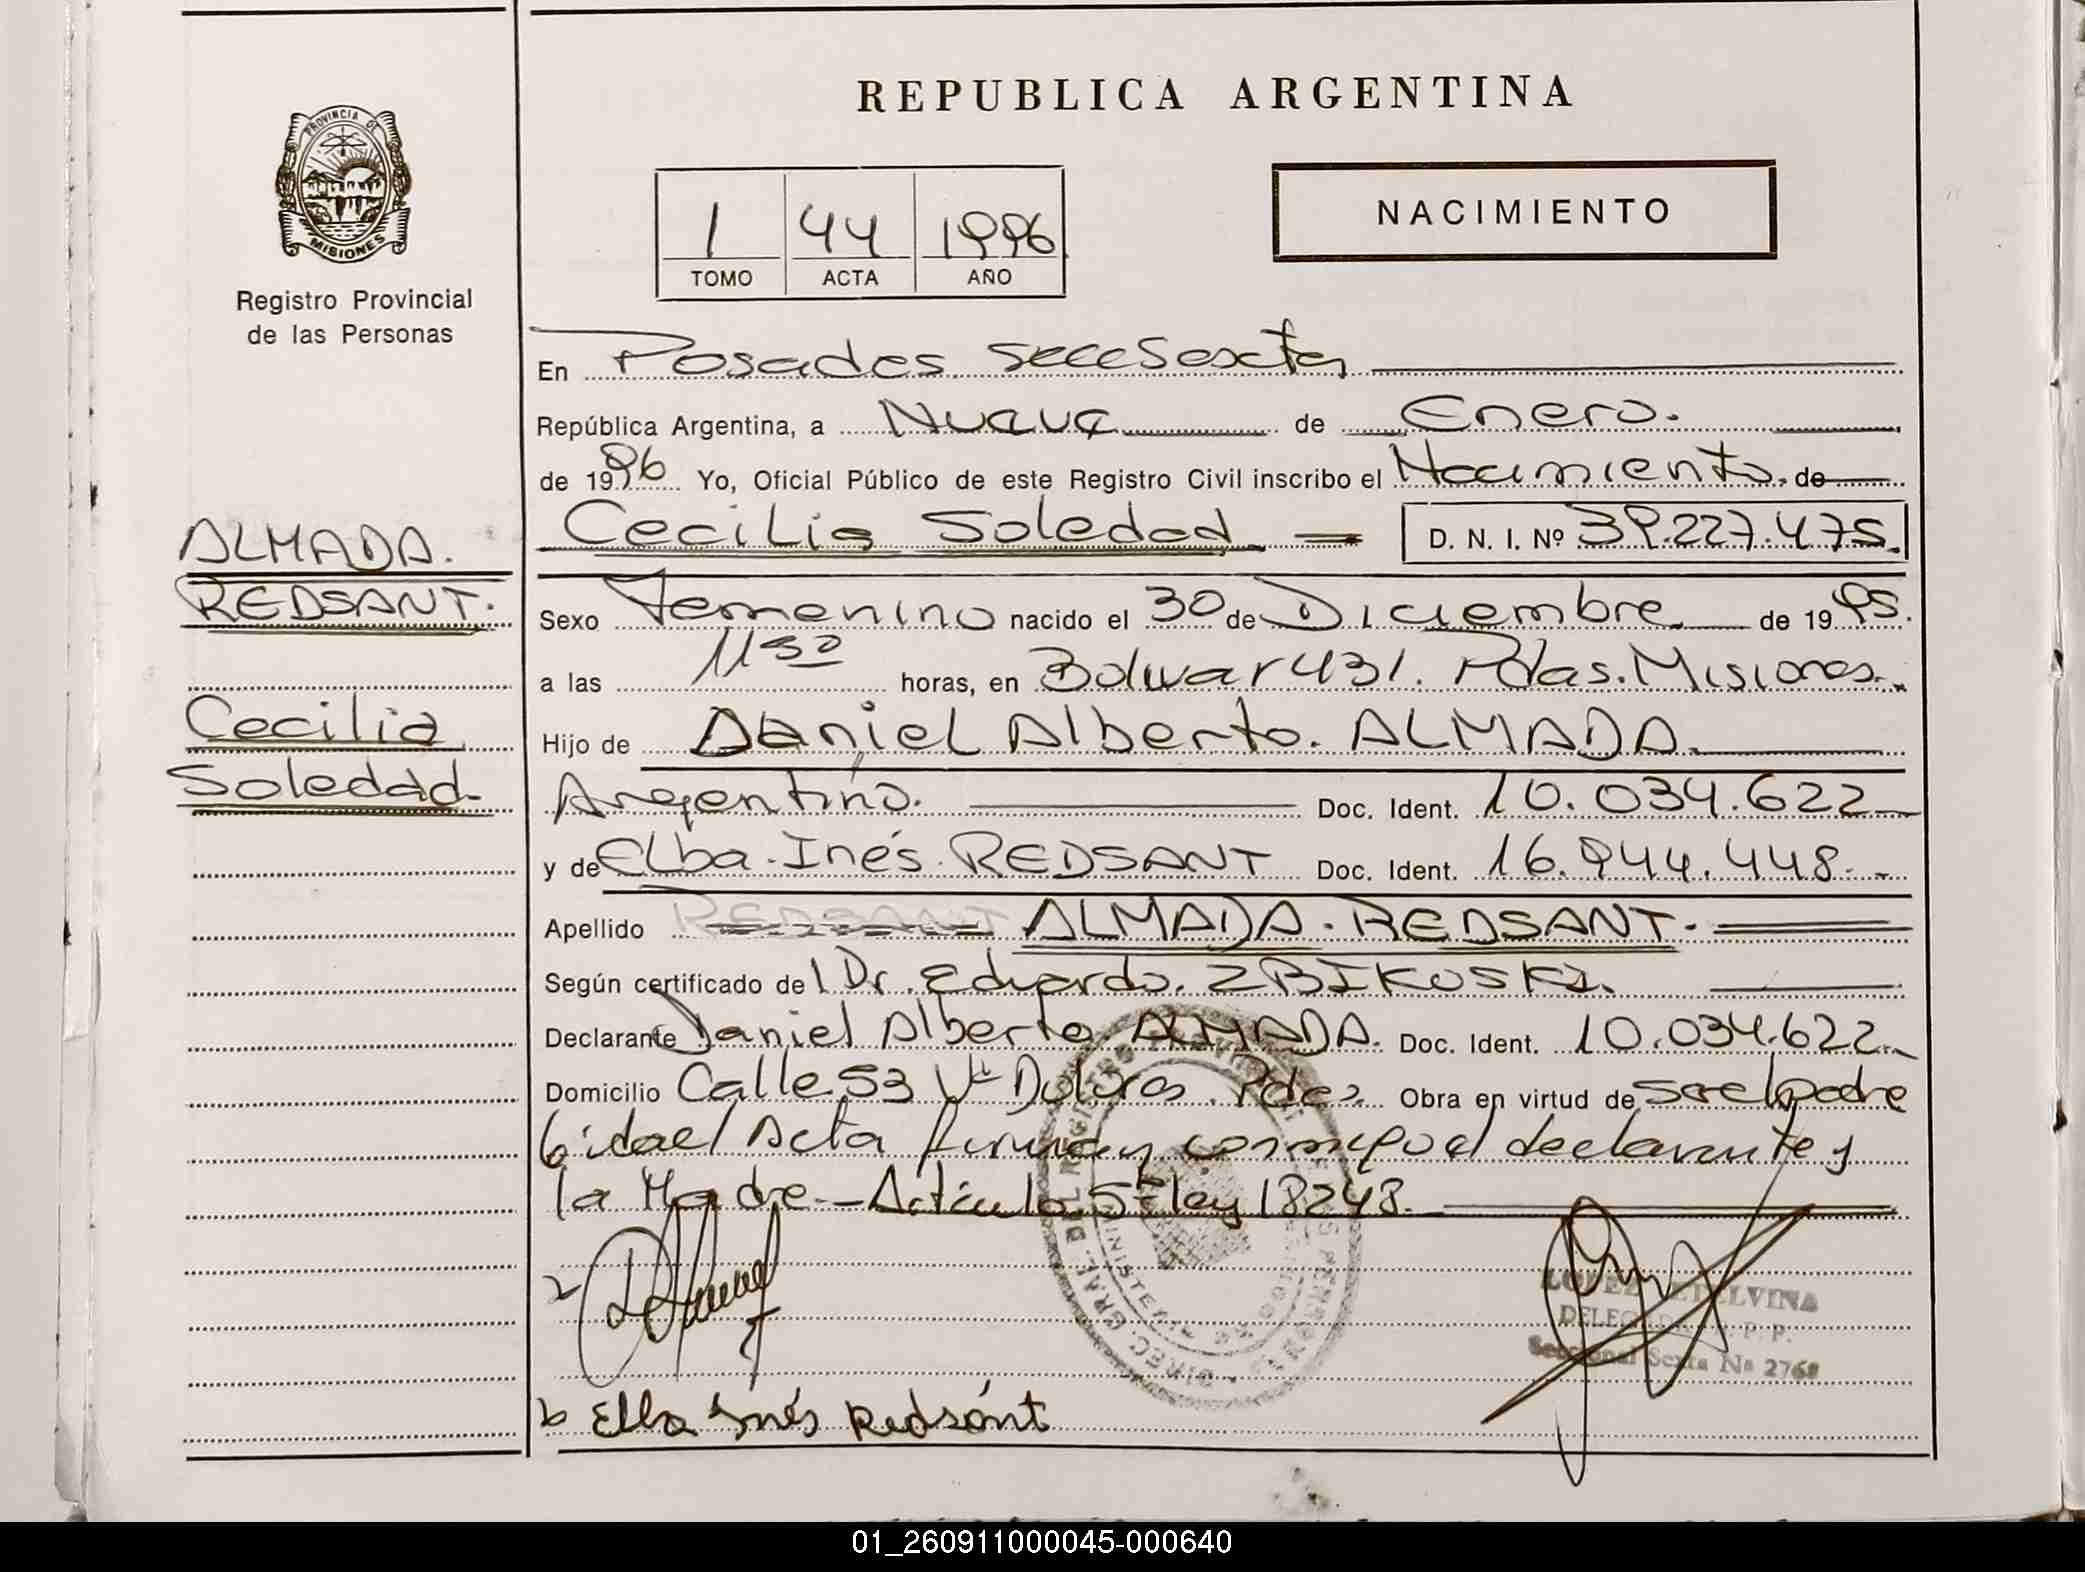 REPUBLICA ARGENTINA
PROVINCIA DE
MISIONES
Registro Provincial
de las Personas
1 44 1996
TOMO ACTA AÑO
NACIMIENTO
En Posadas secc Sexta
República Argentina, a Nueve de Enero.
de 1996 Yo, Oficial Público de este Registro Civil inscribo el Nacimiento. de
Cecilia Soledad D. N. I. Nº 39.227.475.
ALMADA.
REDSANT.
Cecilia
Soledad.
Sexo Femenino nacido el 30 de Diciembre de 1995.
a las 11 30 horas, en Bolivar 431. Pdas. Misiones.
Hijo de Daniel Alberto. ALMADA.
Argentino. Doc. Ident. 10.034.622
y de Elba. Inés. REDSANT Doc. Ident. 16.944.448.
Apellido REDSANT ALMADA. REDSANT.
Según certificado de l Dr. Eduardo. ZBIKOSKI.
Declarante Daniel Alberto ALMADA. Doc. Ident. 10.034.622
Domicilio Calle 53 Vª Dolores. Pdas. Obra en virtud de ser el padre
Leida el Acta firman conmigo el declarante y
la Madre.- Articulo 5º ley 18248.
LOPEZ ETELVINA
DELEGADA R. P. P.
Seccional Sexta Nº 2768
Elba Inés Redsánt
01_260911000045-000640